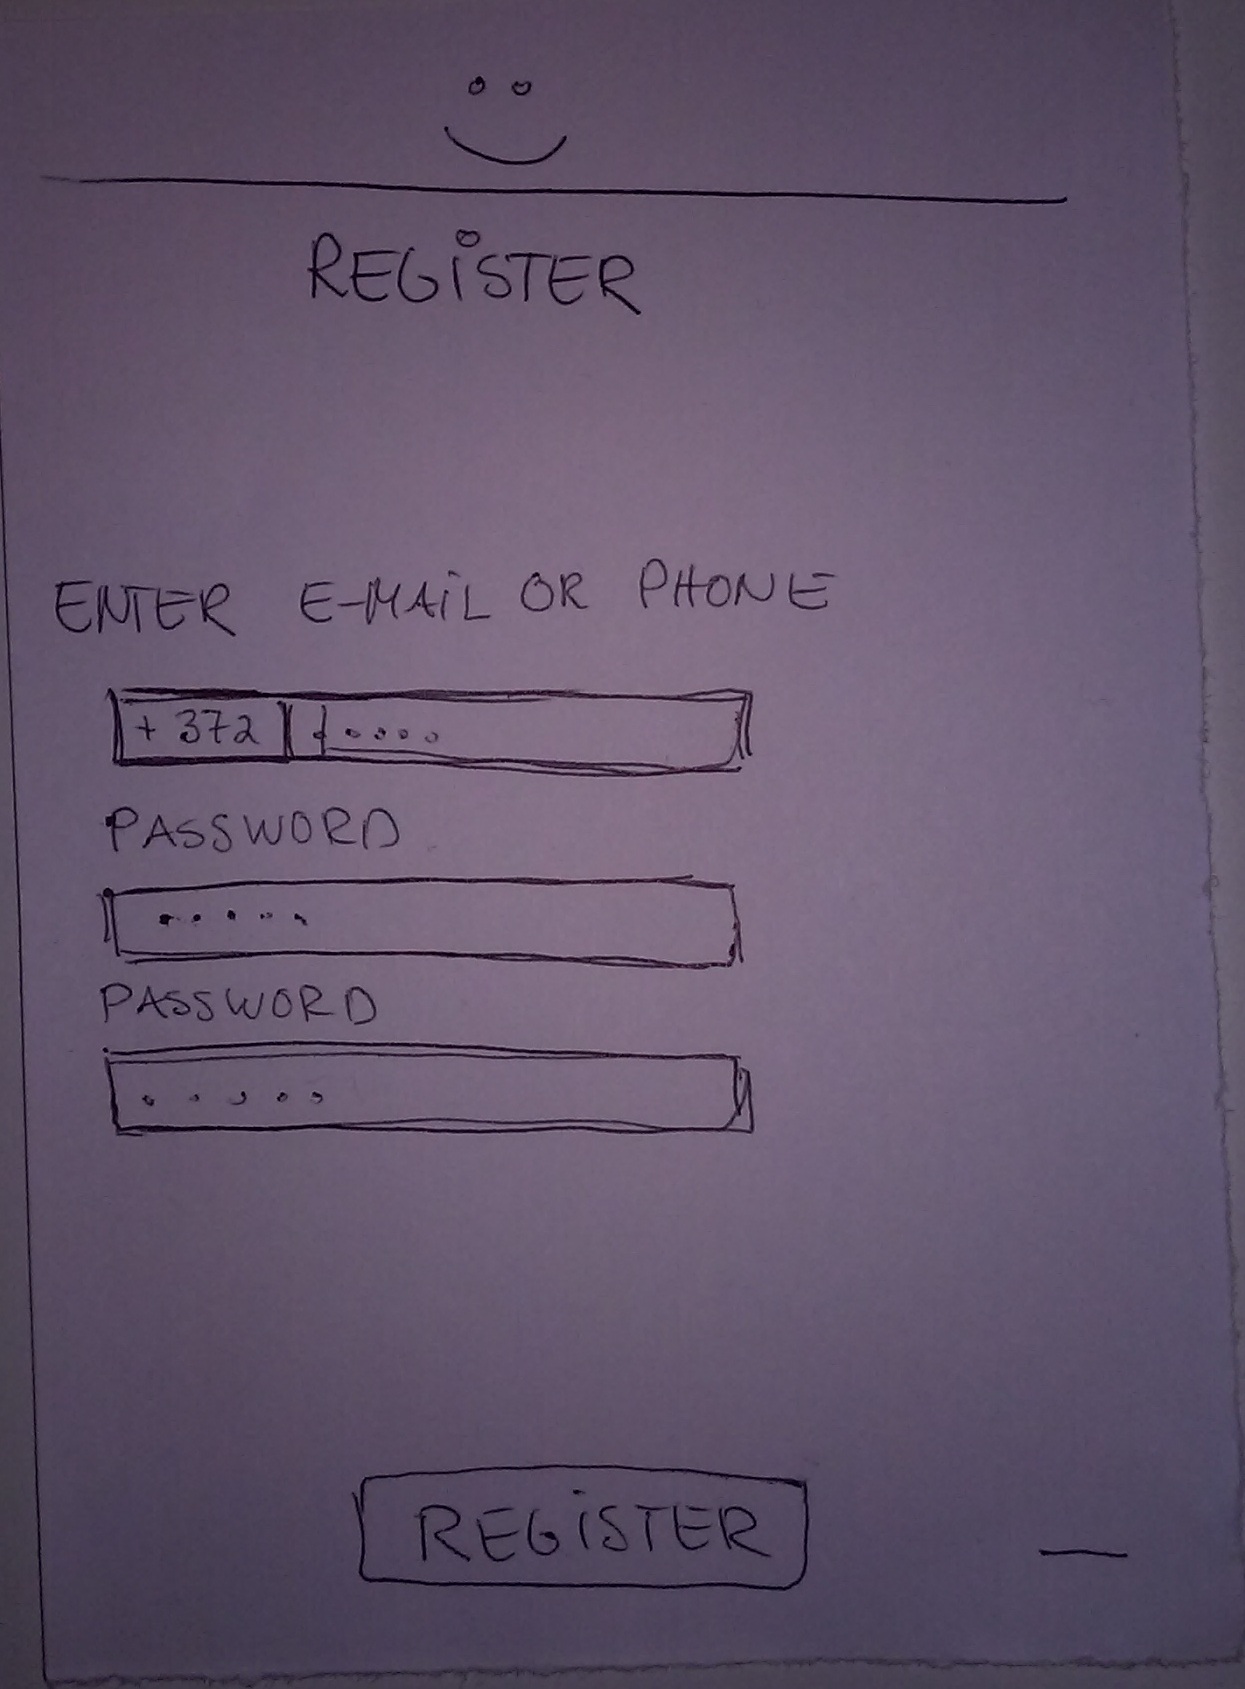 REGISTER
ENTER E-MAIL OR PHONE
+ 372
PASSWORD
PASSWORD
REGISTER